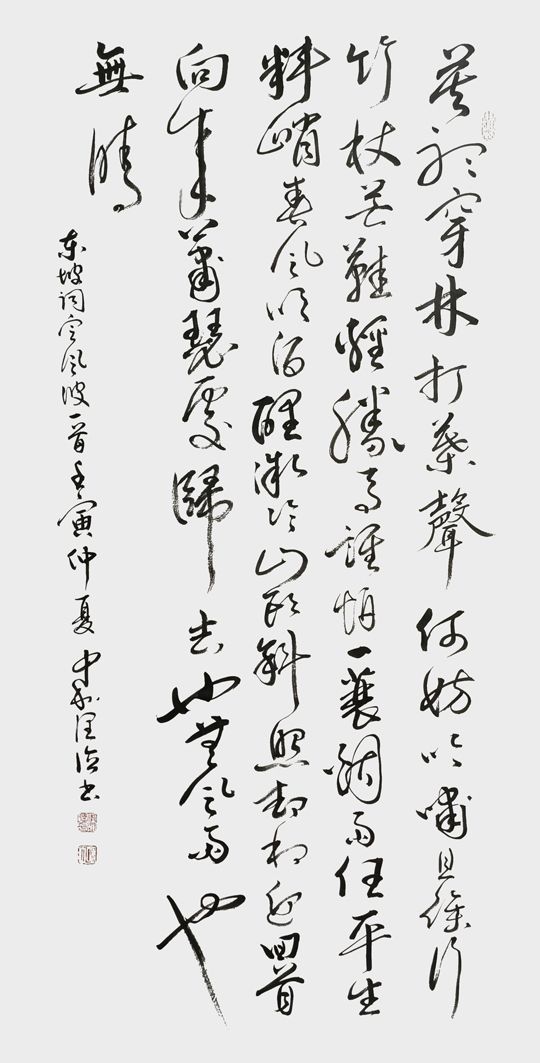 莫聽穿林打葉聲何妨吟嘯且徐行
竹杖芒鞋輕勝馬誰怕一蓑烟雨任平生
料峭春風吹酒醒微冷山頭斜照却相迎回首
向來蕭瑟處歸去也無風雨也
無晴
东坡词定风波一首壬寅仲夏中书